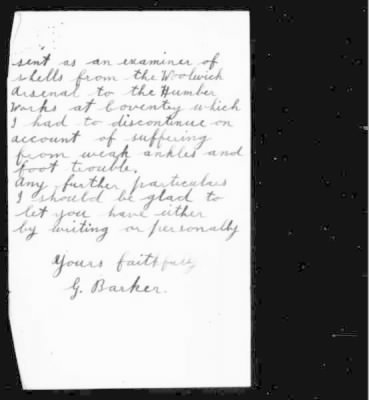 sent as an examiner of
shells from the Woolwich
Arsenal to the Humber
Works at Coventry which
I had to discontinue on
account of suffering
from weak ankles and
foot trouble.
Any further particulars
I should be glad to
let you have either
by writing or personally
Yours faithfully
G. Barker.